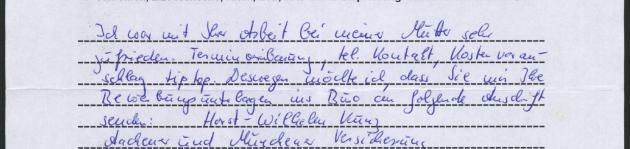 Ich war mit Ihrer Arbeit bei meiner Mutter sehr
zufrieden. Terminvereinbarung, tel. Kontakt, Kostenvoran-
schlag tip top. Deswegen möchte ich, dass Sie mir Ihre
Bewerbungsunterlagen ins Büro an folgende Anschrift
senden: Horst-Wilhelm Kunz
Aachener und Münchener Versicherung